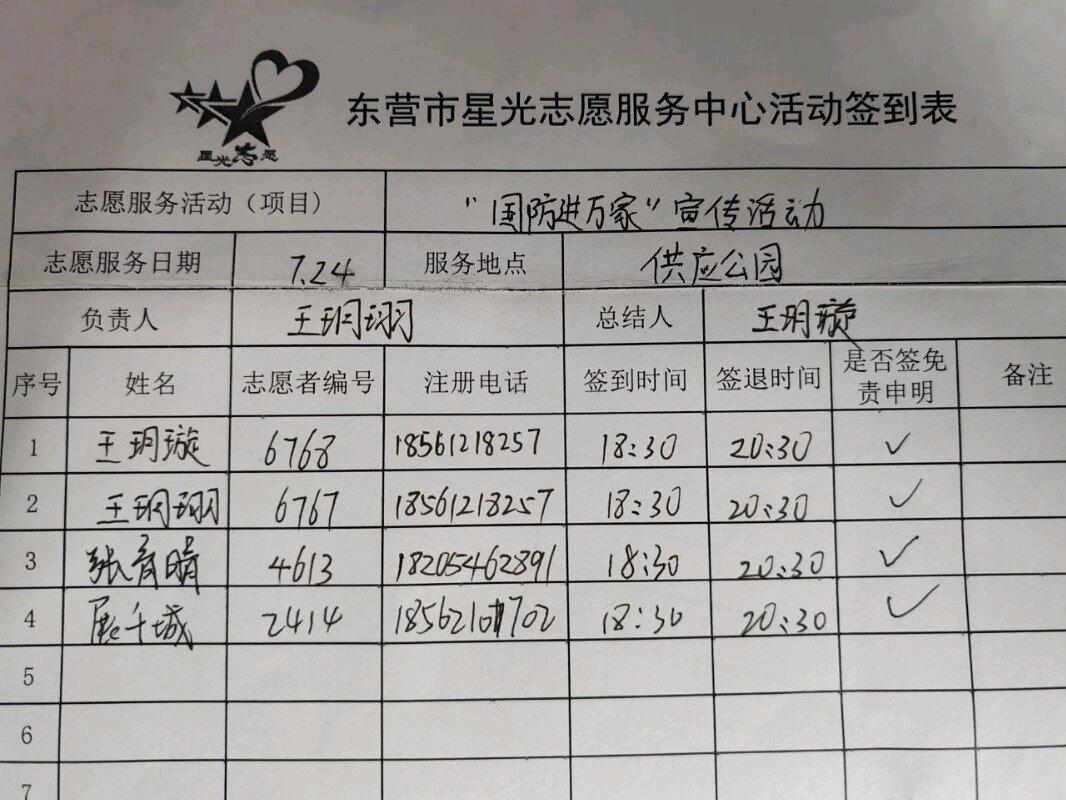 星光志愿
东营市星光志愿服务中心活动签到表
志愿服务活动（项目） “国防进万家”宣传活动
志愿服务日期 7.24 服务地点 供应公园
负责人 王玥珝 总结人 王玥璇
序号 姓名 志愿者编号 注册电话 签到时间 签退时间 是否签免
责申明 备注
1 王玥璇 6768 18561218257 18:30 20:30 ✓
2 王玥珝 6767 18561218257 18:30 20:30 ✓
3 张育晴 4613 18205462891 18:30 20:30 ✓
4 展千城 2414 18562101702 18:30 20:30 ✓
5
6
7